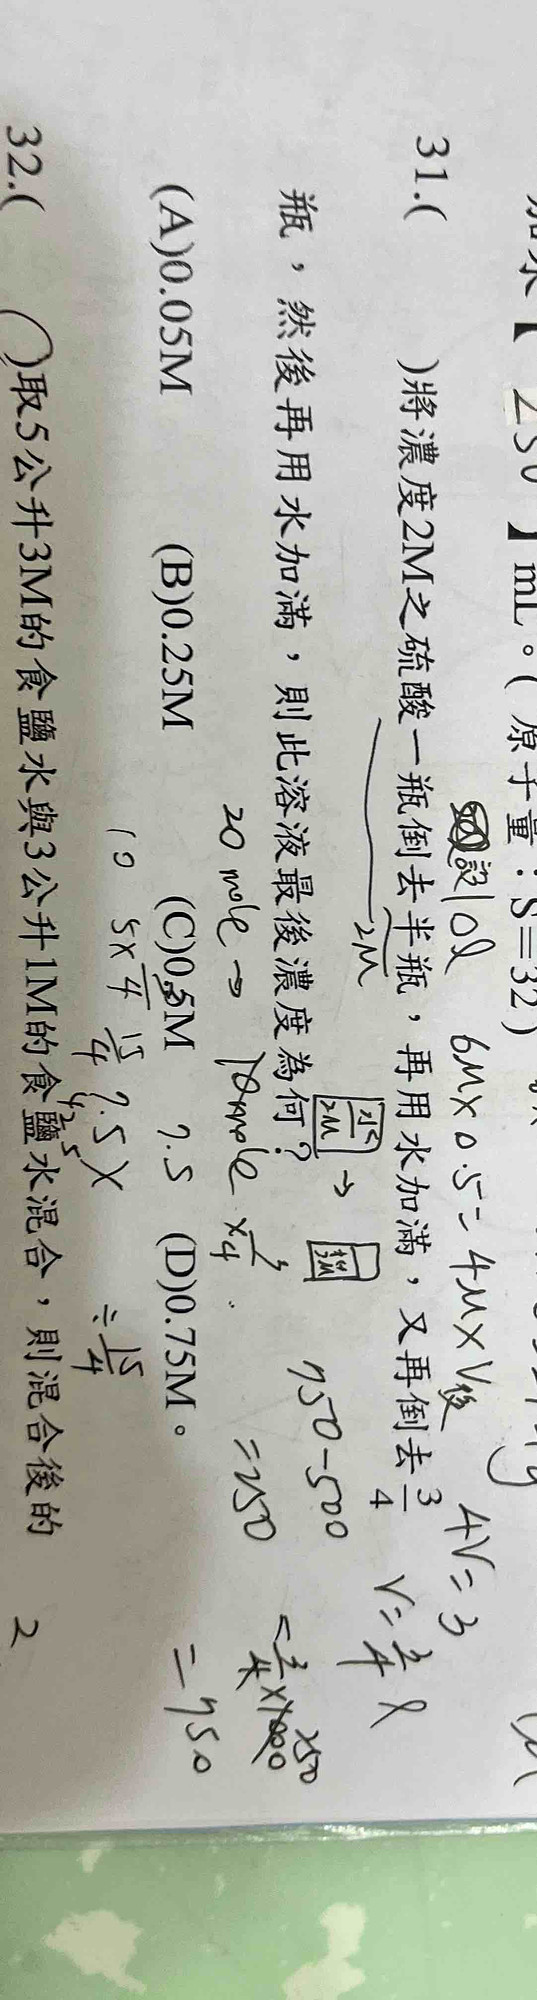 加水【 250 】mL。(原子量：S=32)
6M×0.5=4M×V後
4V=3
V=3/4 l
31.( )將濃度2M之硫酸一瓶倒去半瓶，再用水加滿，又再倒去3/4
設10l
2M
瓶，然後再用水加滿，則此溶液最後濃度為何？
水
2M
→
750-500
=250
20 mole → 10 mole ×3/4
3/4×1000
250
=750
(A)0.05M (B)0.25M (C)0.5M (D)0.75M。
7.5
10
5×
15/4
7.5
÷15/4
32.( )取5公升3M的食鹽水與3公升1M的食鹽水混合，則混合後的
2